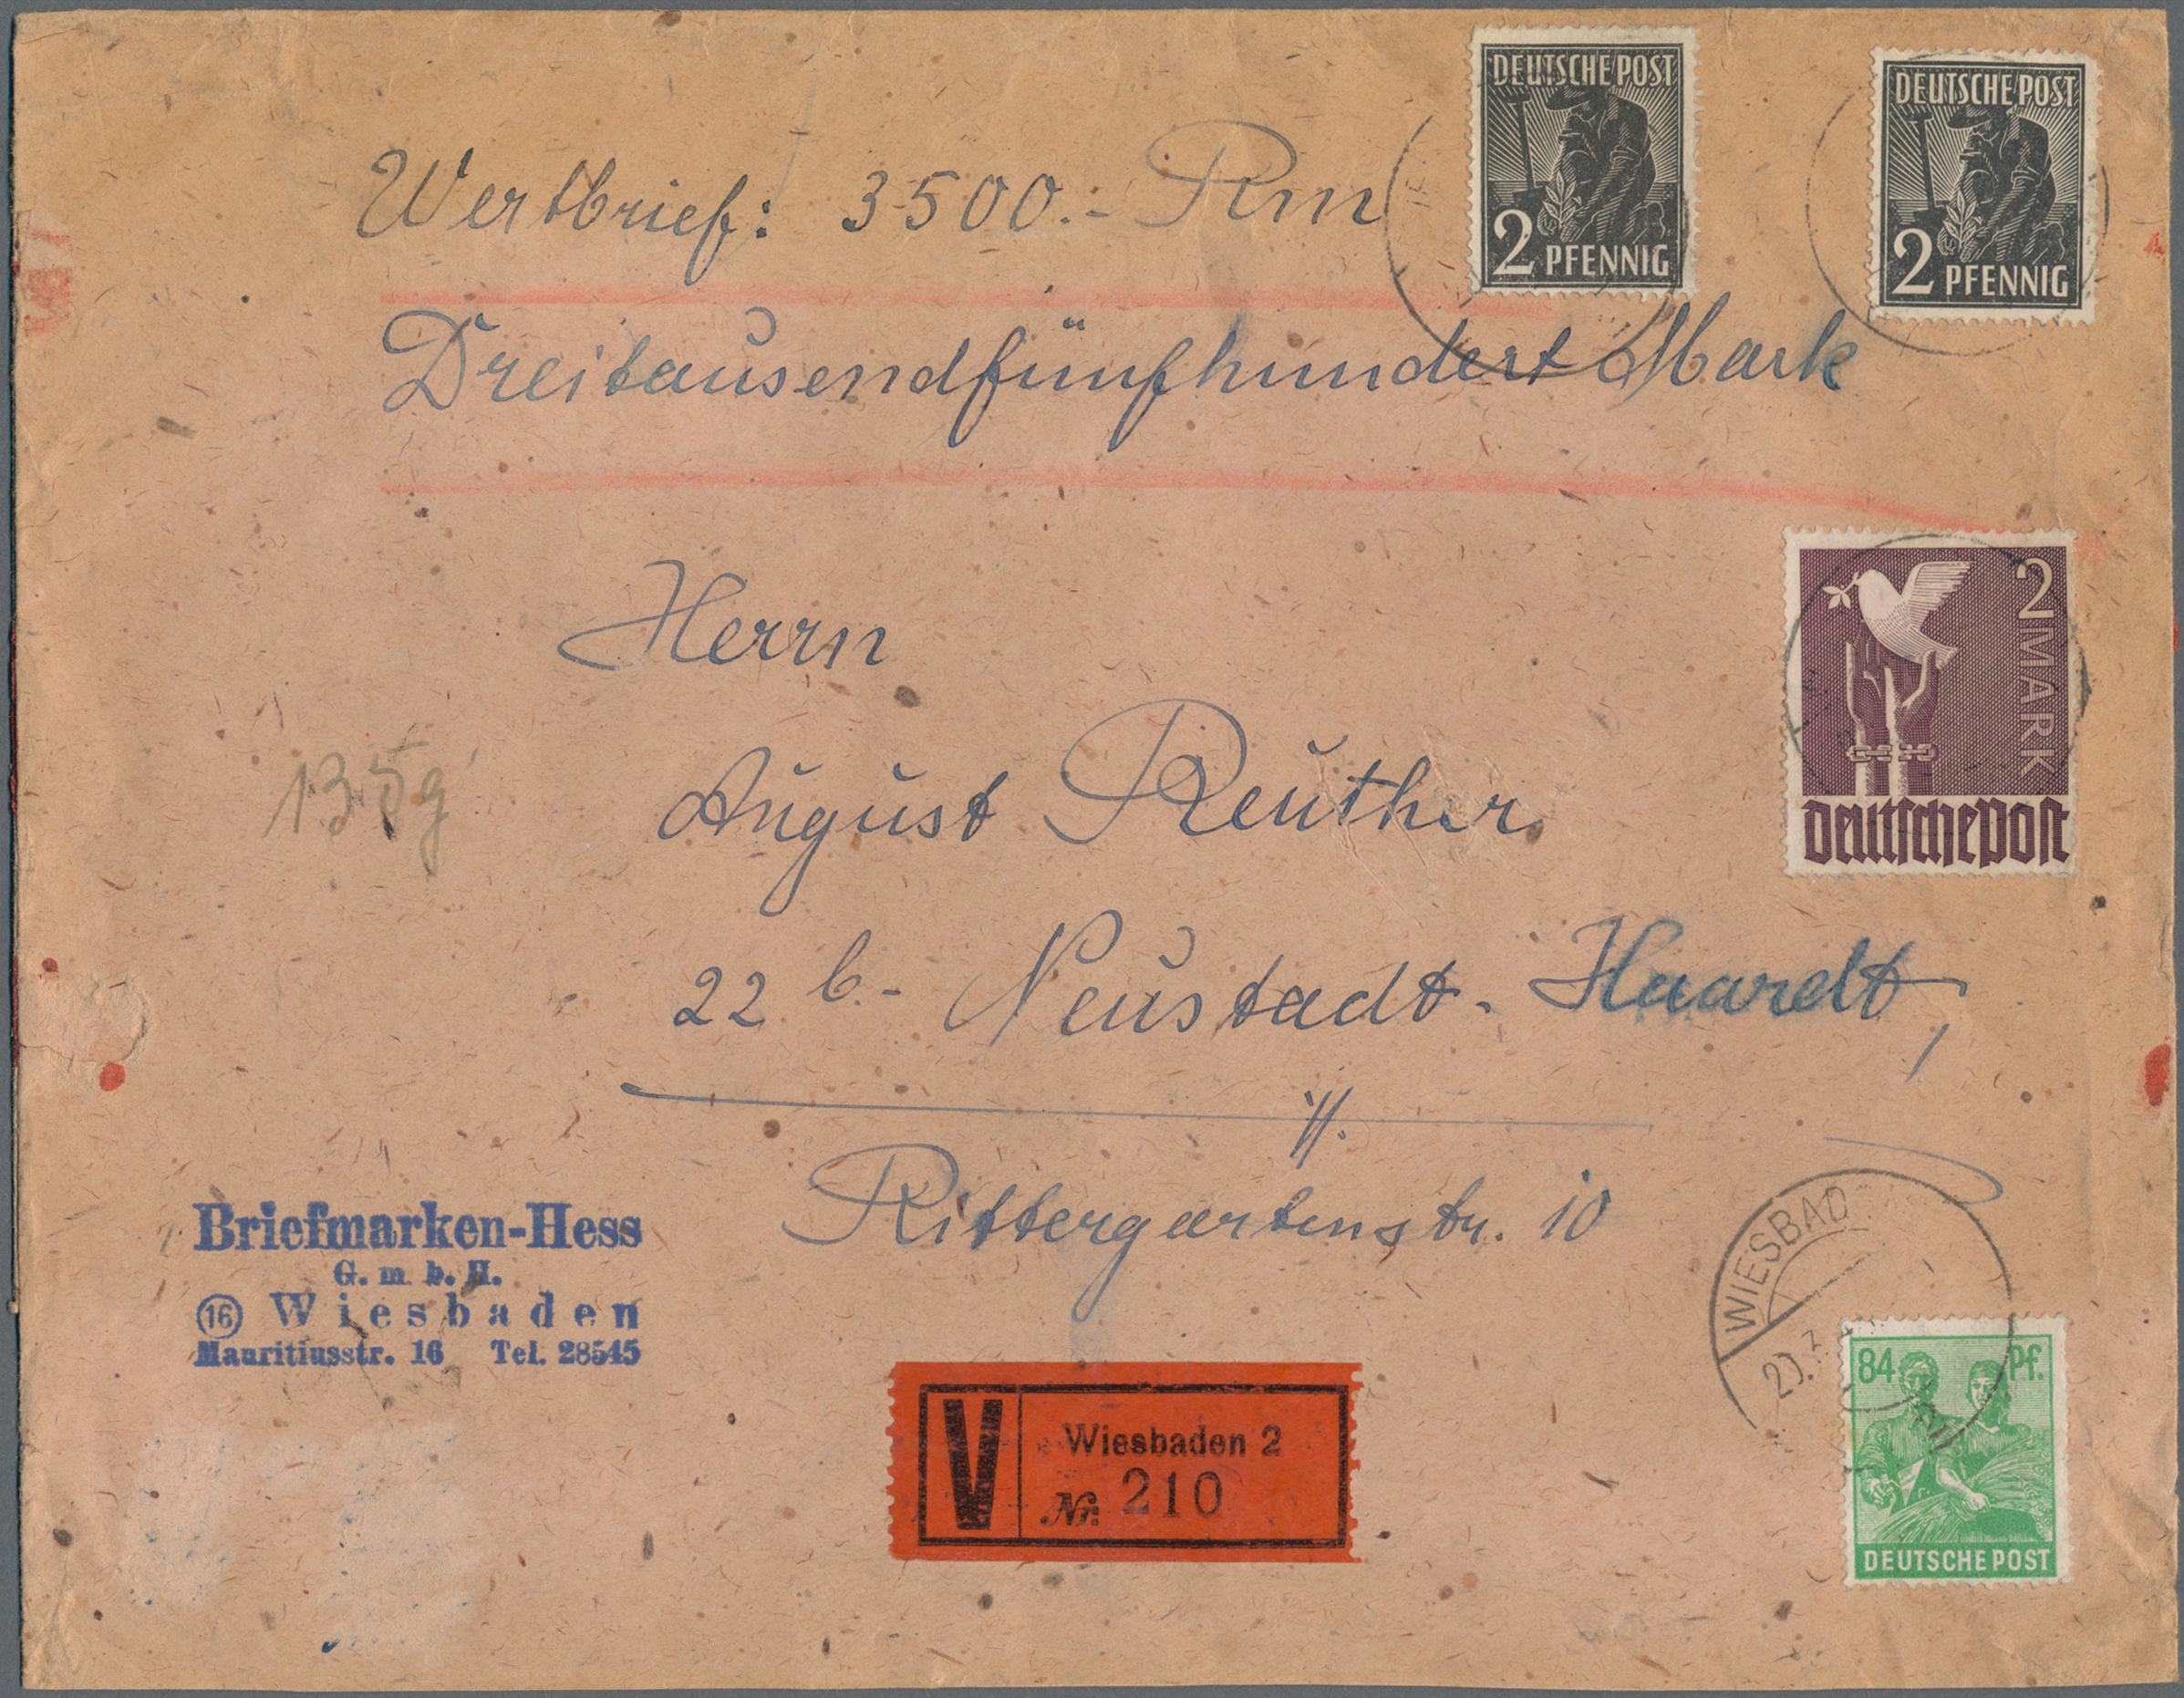 DEUTSCHE POST
2 PFENNIG
DEUTSCHE POST
2 PFENNIG
Wertbrief: 3500.- Rm
Dreitausendfünfhundert Mark
2 MARK
Deutsche Post
Herrn
August Reuther
135g
22 b - Neustadt - Haardt,
Rittergartenstr. 10
Briefmarken-Hess
G. m. b. H.
(16) Wiesbaden
Mauritiusstr. 16 Tel. 28545
WIESBAD
84 Pf.
DEUTSCHE POST
V Wiesbaden 2
Nr. 210